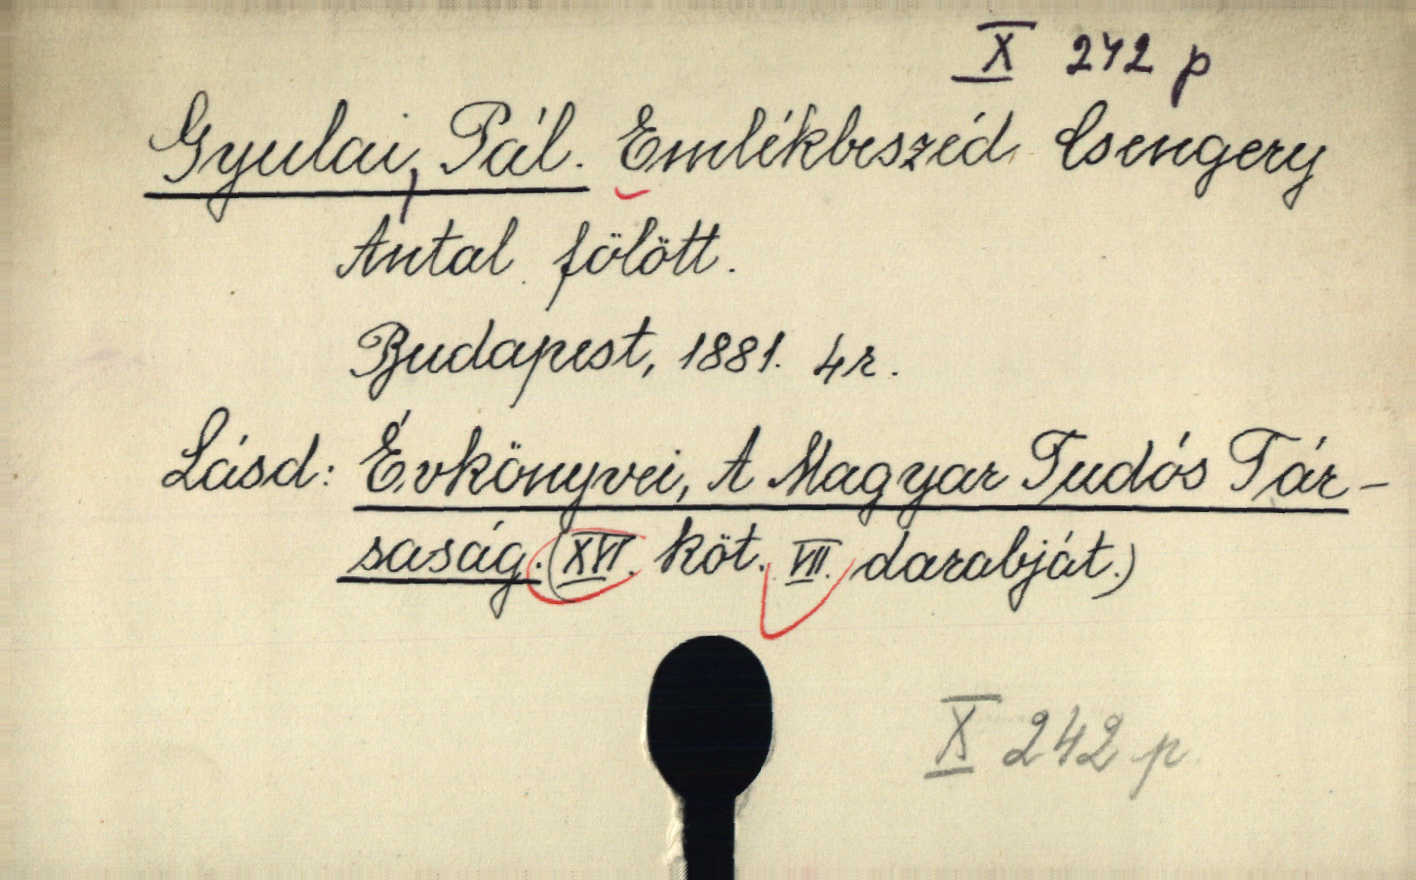 X 242 p
Gyulai, Pál. Emlékbeszéd Csengery
Antal fölött.
Budapest, 1881. 4r.
Lásd: Évkönyvei, A Magyar Tudós Tár-
saság. (XVI. köt. VII. darabját.)
X 242 p.